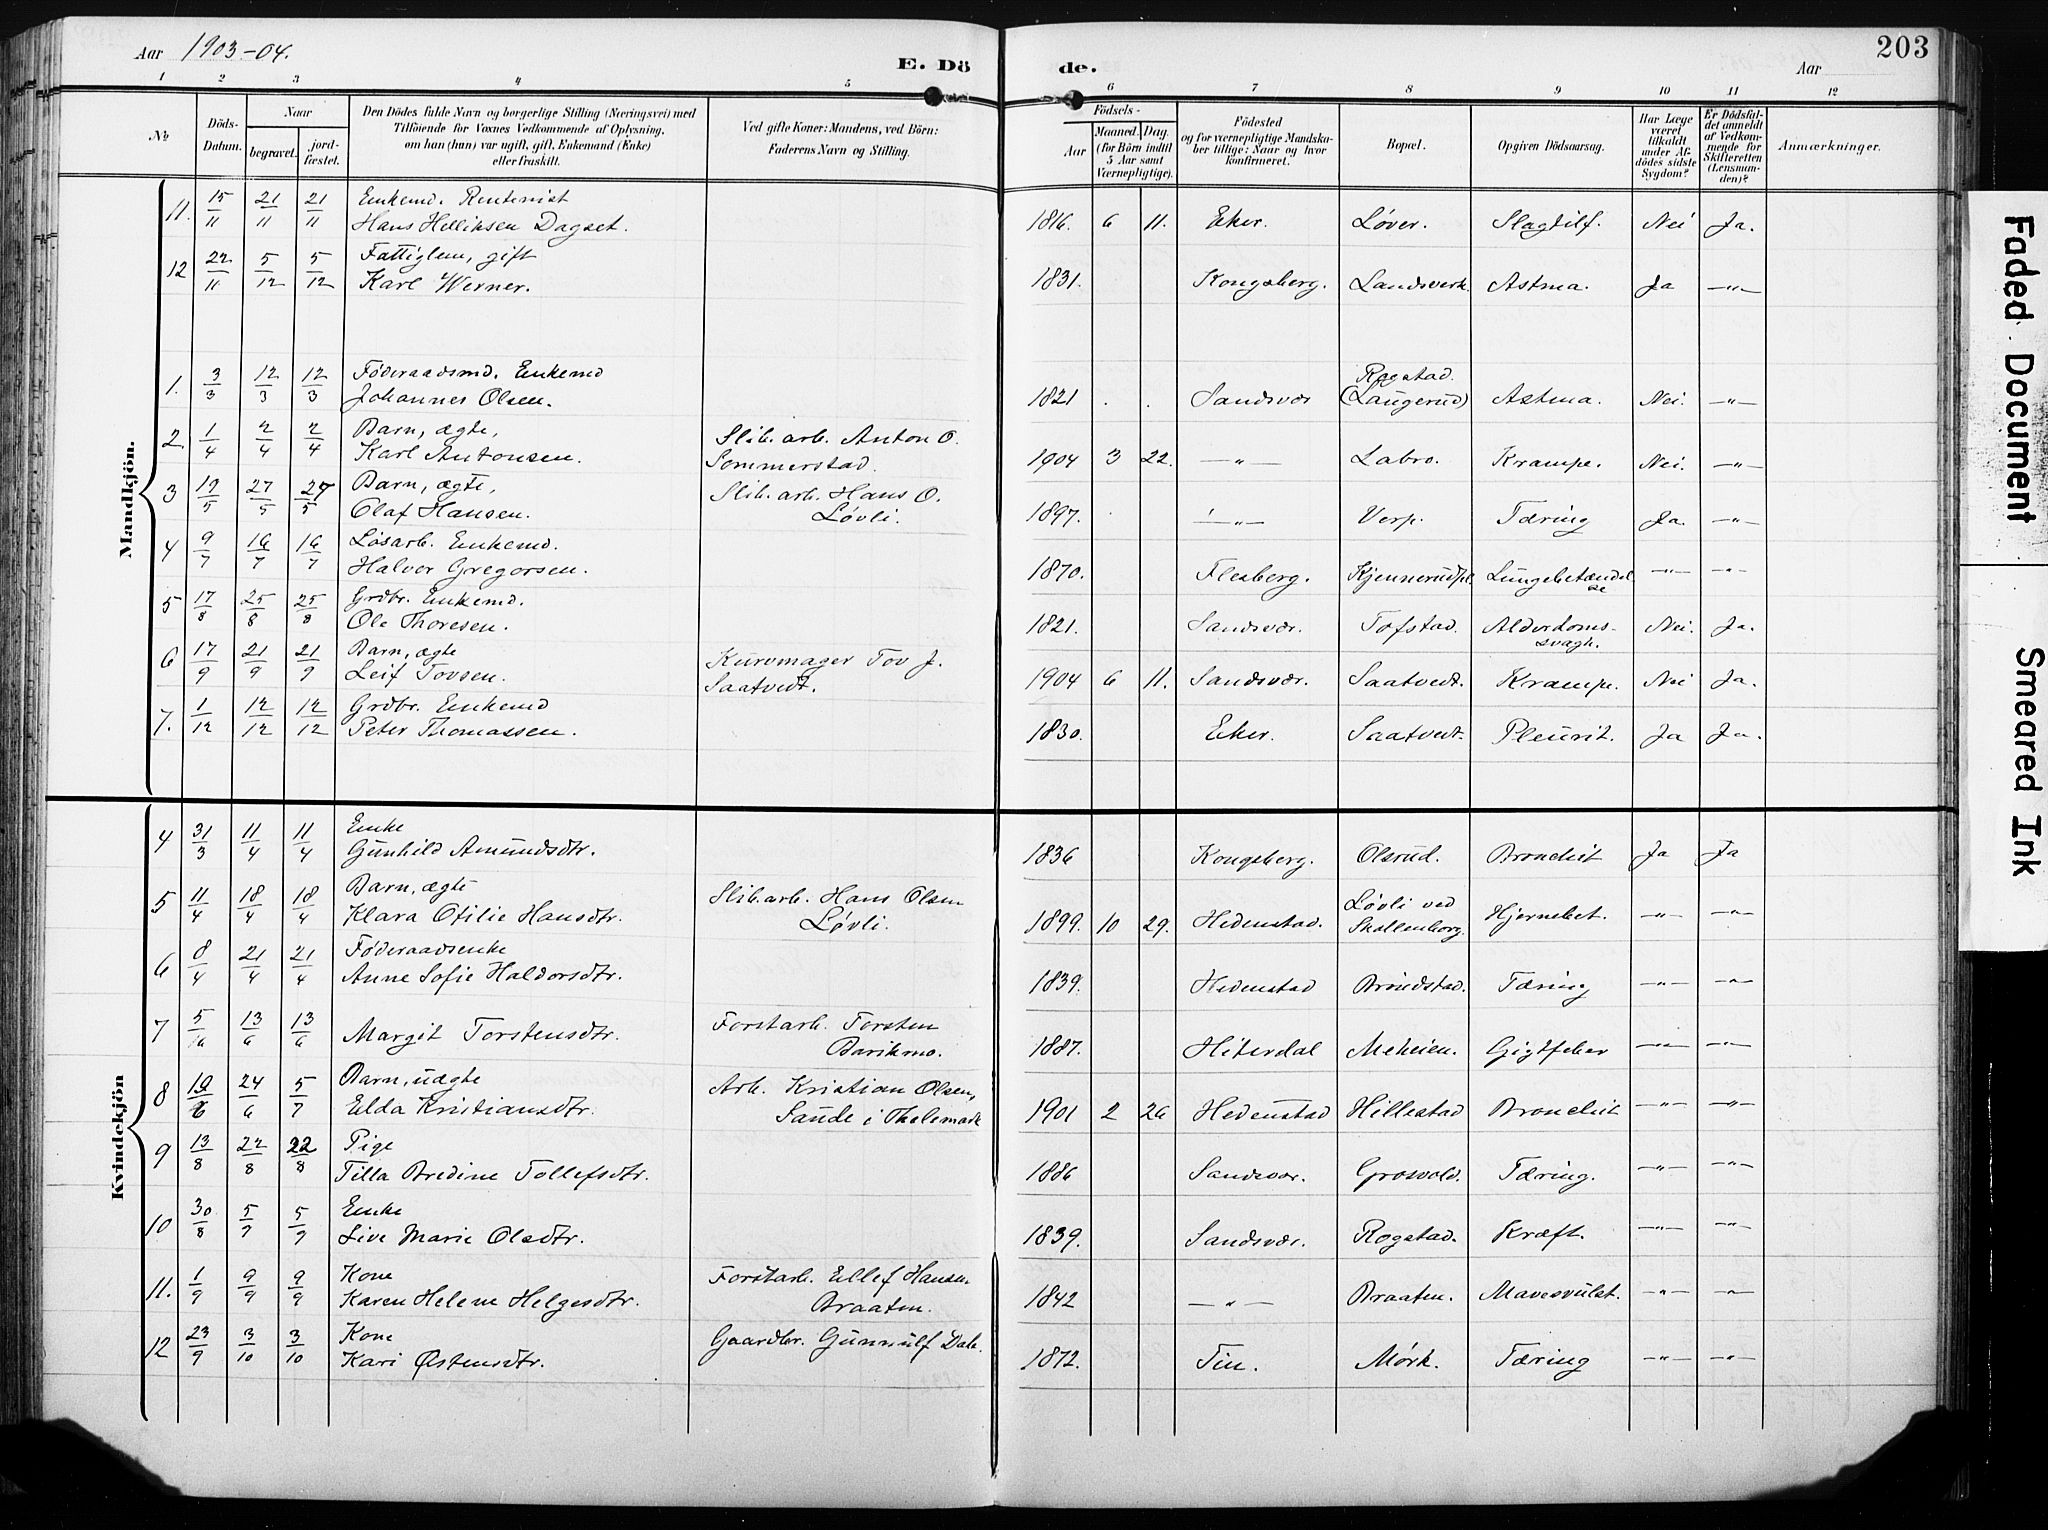 Aar 1903-04.
E. Dö de.
Aar
203
1 2 3 4 5 6 7 8 9 10 11 12
No
Döds-Datum.
Naar
begravet.
jord-fæstet.
Den Dödes fulde Navn og borgerlige Stilling (Næringsvei) med
Tilföiende for Voxnes Vedkommende af Oplysning,
om han (hun) var ugift, gift, Enkemand (Enke)
eller fraskilt.
Ved gifte Koner: Mandens, ved Börn:
Faderens Navn og Stilling.
Födsels-
Aar
Maaned. Dag.
(for Börn indtil
5 Aar samt
Værnepligtige).
Födested
og for værnepligtige Mandska-
ber tillige: Naar og hvor
konfirmeret.
Bopæl.
Opgiven Dödsaarsag.
Har Læge
været
tilkaldt
under Af-
dödes sidste
Sygdom?
Er Dödsfal-
det anmeldt
af Vedkom-
mende for
Skifteretten
(Lensman-
den)?
Anmærkninger.
Mandkjön.
11. 15/11 21/11 21/11 Enkemd. Rentenist
Hans Helliksen Dagset. 1816. 6 11. Eker. Løver. Slagtilf. Nei Ja.
12 22/11 5/12 5/12 Fattiglem, gift
Karl Werner. 1831. Kongsberg. Landsverk. Astma. Ja —"—
1. 3/3 12/3 12/3 Føderaadsmd. Enkemd
Johannes Olsen. 1821 . . Sandsvær Rogstad. (Laugerud) Astma. Nei. —"—
2. 1/4 2/4 2/4 Barn, ægte, Slib. arb. Anton O.
Karl Antonsen. Sommerstad. 1904 3 22. —"— Labro. Krampe. Nei. —"—
3 19/5 27/5 27/5 Barn, ægte, Slib. arb. Hans O.
Olaf Hansen. Løvli. 1897. —"— Verp. Tæring Ja. —"—
4 9/7 16/7 16/7 Løsarb. Enkemd.
Halvor Gregorsen. 1870. Flesberg. Kjennerudpl. Lungebetændelse —"— —"—
5 17/8 25/8 25/8 Grdbr. Enkemd.
Ole Thoresen. 1821. Sandsvær. Tofstad. Alderdoms-svagh. Nei. Ja.
6 17/9 21/9 21/9 Barn, ægte Kurvmager Tov J.
Leif Tovsen. Saatvedt. 1904 6 11. Sandsvær. Saatvedt. Krampe. Nei Ja.
7. 1/12 12/12 12/12 Grdbr. Enkemd
Peter Thomassen. 1830. Eker. Saatvedt. Pleurit. Ja Ja.
Kvindekjön
4 31/3 11/4 11/4 Enke
Gunhild Amundsdtr. 1836 Kongsberg. Olsrud. Bronchit Ja Ja
5 11/4 18/4 18/4 Barn, ægte Slib. arb. Hans Olsen
Klara Otilie Hansdtr. Løvli. 1899. 10 29. Hedenstad. Løvli ved Skollenborg. Hjernebet. —"— —"—
6 8/4 21/4 21/4 Føderaadsenke
Anne Sofie Haldorsdtr. 1839. Hedenstad Brundstad. Tæring —"— —"—
7 13/6 13/6 Margit Torstensdtr. Forstarb. Torsten
1887. Hiterdal Meheien. Gigtfeber —"— —"—
8 19/6 24/6 5/7 Barn, uægte Arb. Kristian Olsen,
Elda Kristiansdtr. Sande i Thelemark 1901 2 26 Hedenstad Hillestad Bronchit —"— —"—
9 13/8 22/8 22/8 Pige
Tilla Bredine Tollefsdtr. 1886 Sandsvær. Grosvold. Tæring. —"— —"—
10 30/8 5/9 5/9 Enke
Live Marie Olsdtr. 1839. Sandsvær. Rogstad. Kræft. —"— —"—
11. 1/9 9/9 9/9 Kone Forstarb. Ellef Hansen
Karen Helene Helgesdtr. Braaten. 1842 —"— Braaten. Mavesvulst. —"— —"—
12 23/9 3/10 3/10 Kone Gaardbr. Gunnulf Dale.
Kari Østensdtr. 1872. Tin. Mørk. Tæring —"— —"—
Faded Document
Smeared Ink